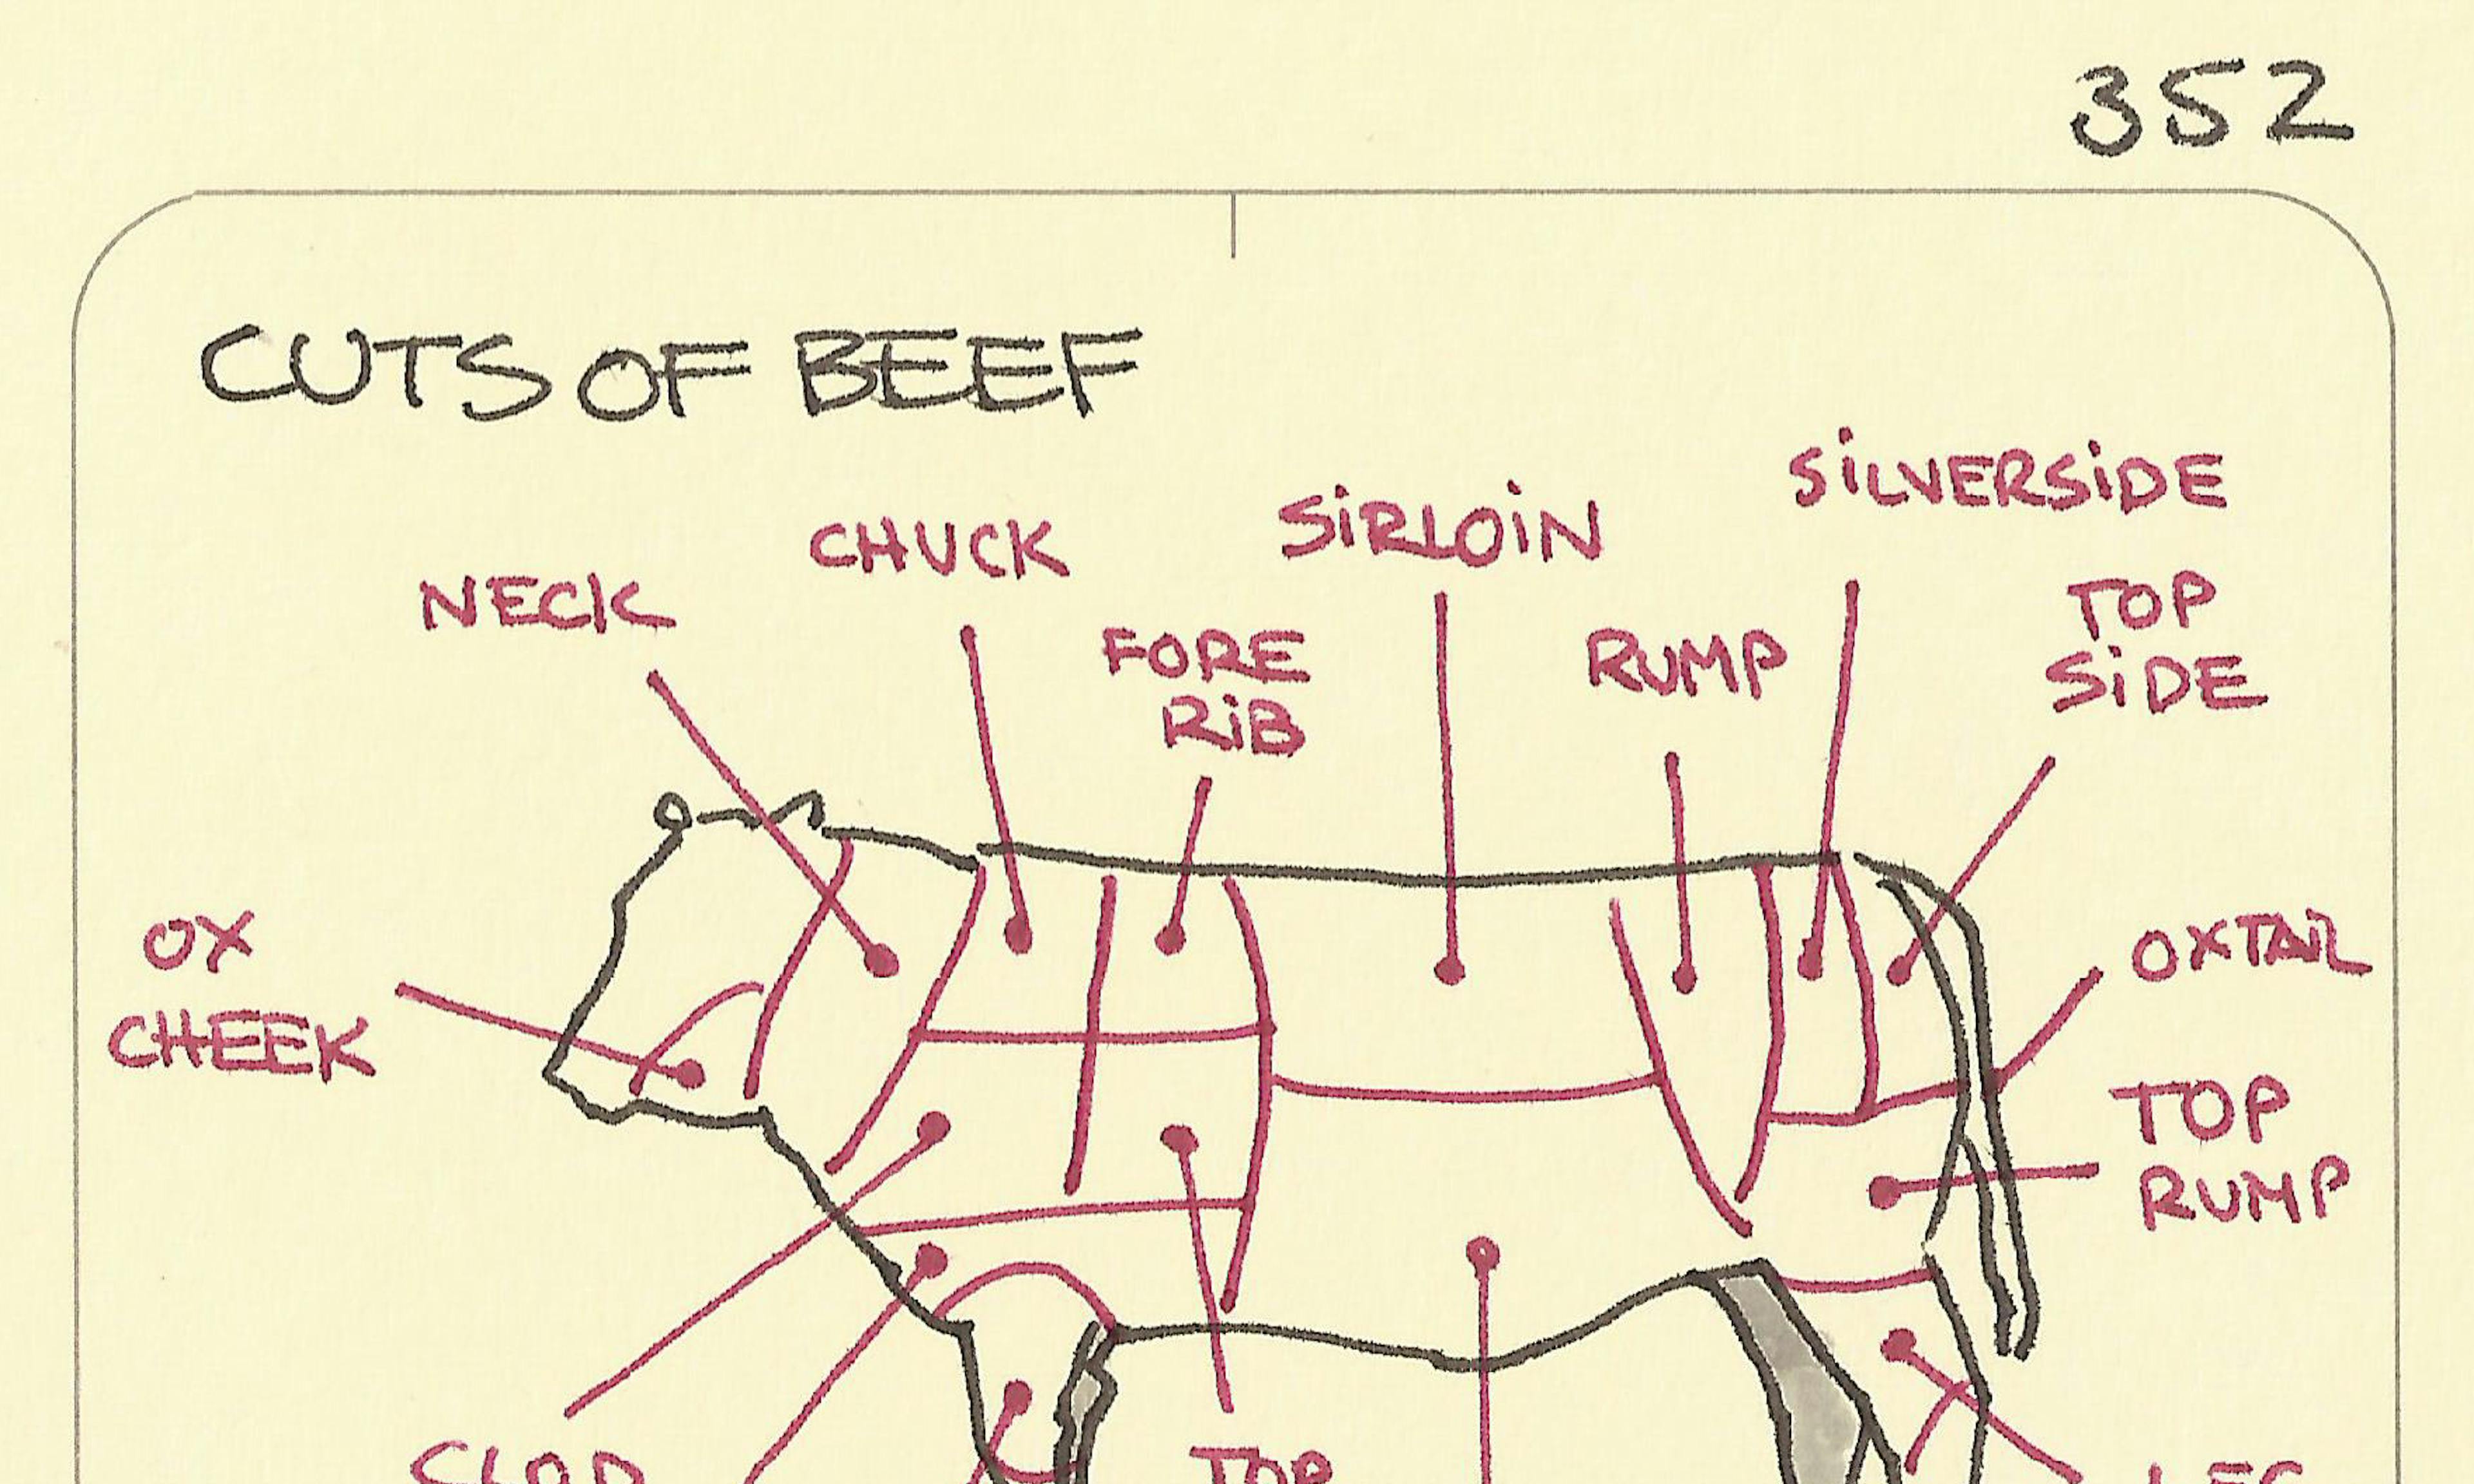 352
CUTS OF BEEF
SiLVERSiDE
SiRLOiN
CHUCK
NECK
TOP
SiDE
FORE
RiB
RUMP
OX
CHEEK
OXTAIL
TOP
RUMP
CLOD
TOP
LEG